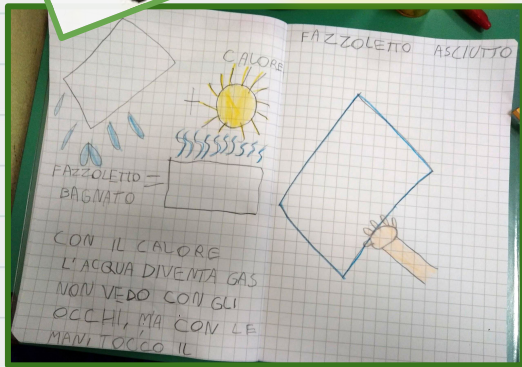 CALORE
+
FAZZOLETTO =
BAGNATO
CON IL CALORE
L'ACQUA DIVENTA GAS
NON VEDO CON GLI
OCCHI, MA CON LE
MANI TOCCO IL
FAZZOLETTO ASCIUTTO